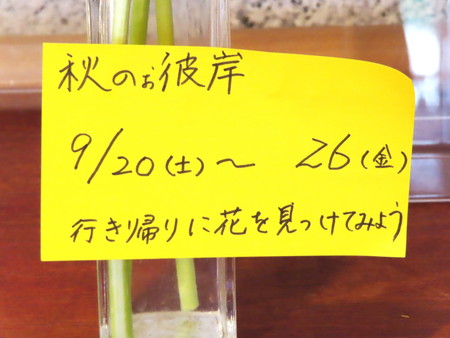 秋のお彼岸
9/20(土)〜 26(金)
行き帰りに花を見つけてみよう